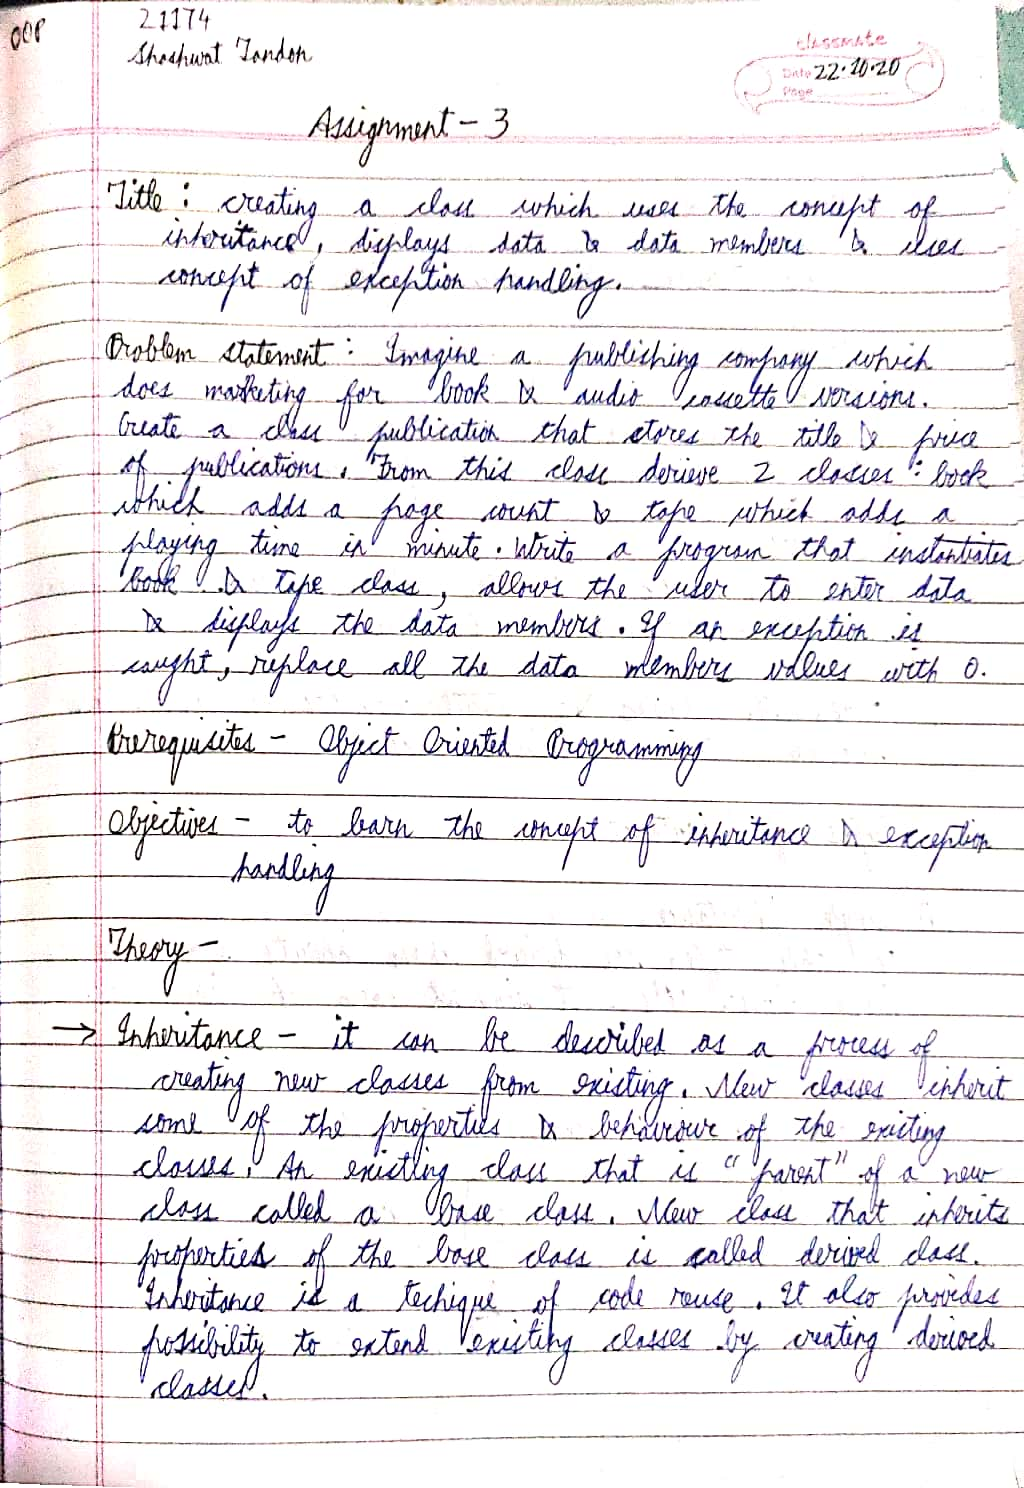 OOP
21174
Shashwat Tandon
classmate
Date 22·10·20
Page
Assignment - 3
Title : creating a class which uses the concept of
inheritance, displays data & data members & uses
concept of exception handling.
Problem statement : Imagine a publishing company which
does marketing for book & audio cassette versions.
Create a class publication that stores the title & price
of publications. From this class derieve 2 classes : book
which adds a page count & tape which adds a
playing time in minute. Write a program that instantiates
book & tape class, allows the user to enter data
& displays the data members. If an exception is
caught, replace all the data members values with 0.
Prerequisites - Object Oriented Programming
Objectives - to learn the concept of inheritance & exception
handling
Theory -
→ Inheritance - it can be described as a process of
creating new classes from existing. New classes inherit
some of the properties & behaviour of the existing
classes. An existing class that is "parent" of a new
class called a base class. New class that inherits
properties of the base class is called derived class.
Inheritance is a techique of code reuse. It also provides
possibility to extend existing classes by creating derived
classes.